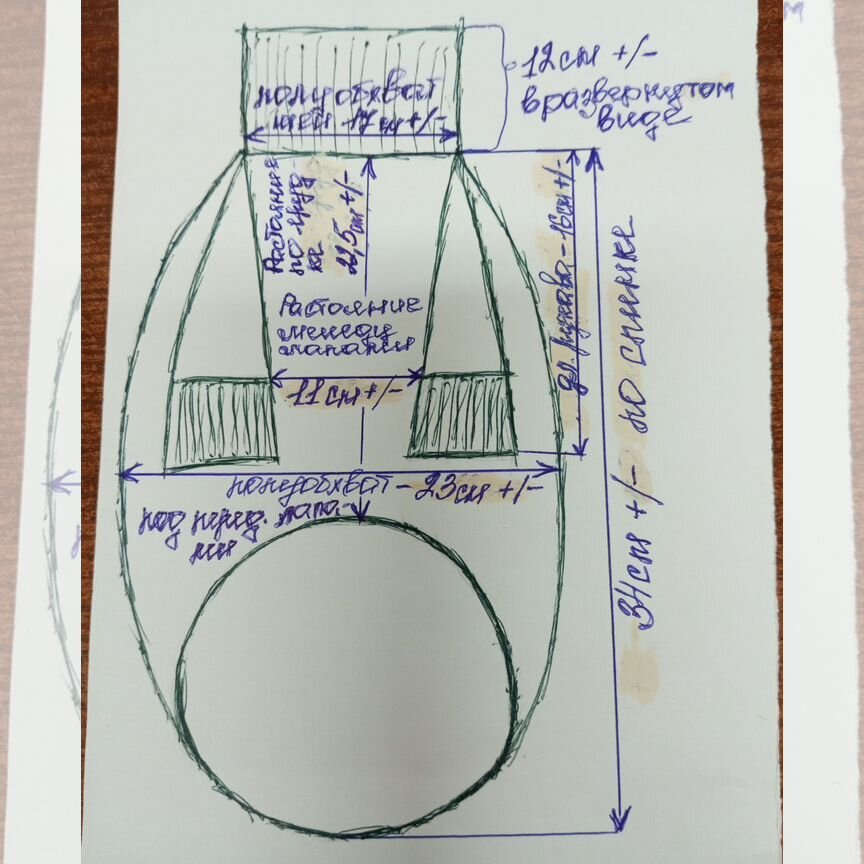 полуобхват
шеи - 17 см +/-
12 см +/-
в развернутом
виде
Растояние
по груд
ке
22,5 см +/-
Растояние
между
лапами
11 см +/-
дл. рукава - 16 см +/-
34 см +/- по спинке
полуобхват - 23 см +/-
под перед. лапа-
ми